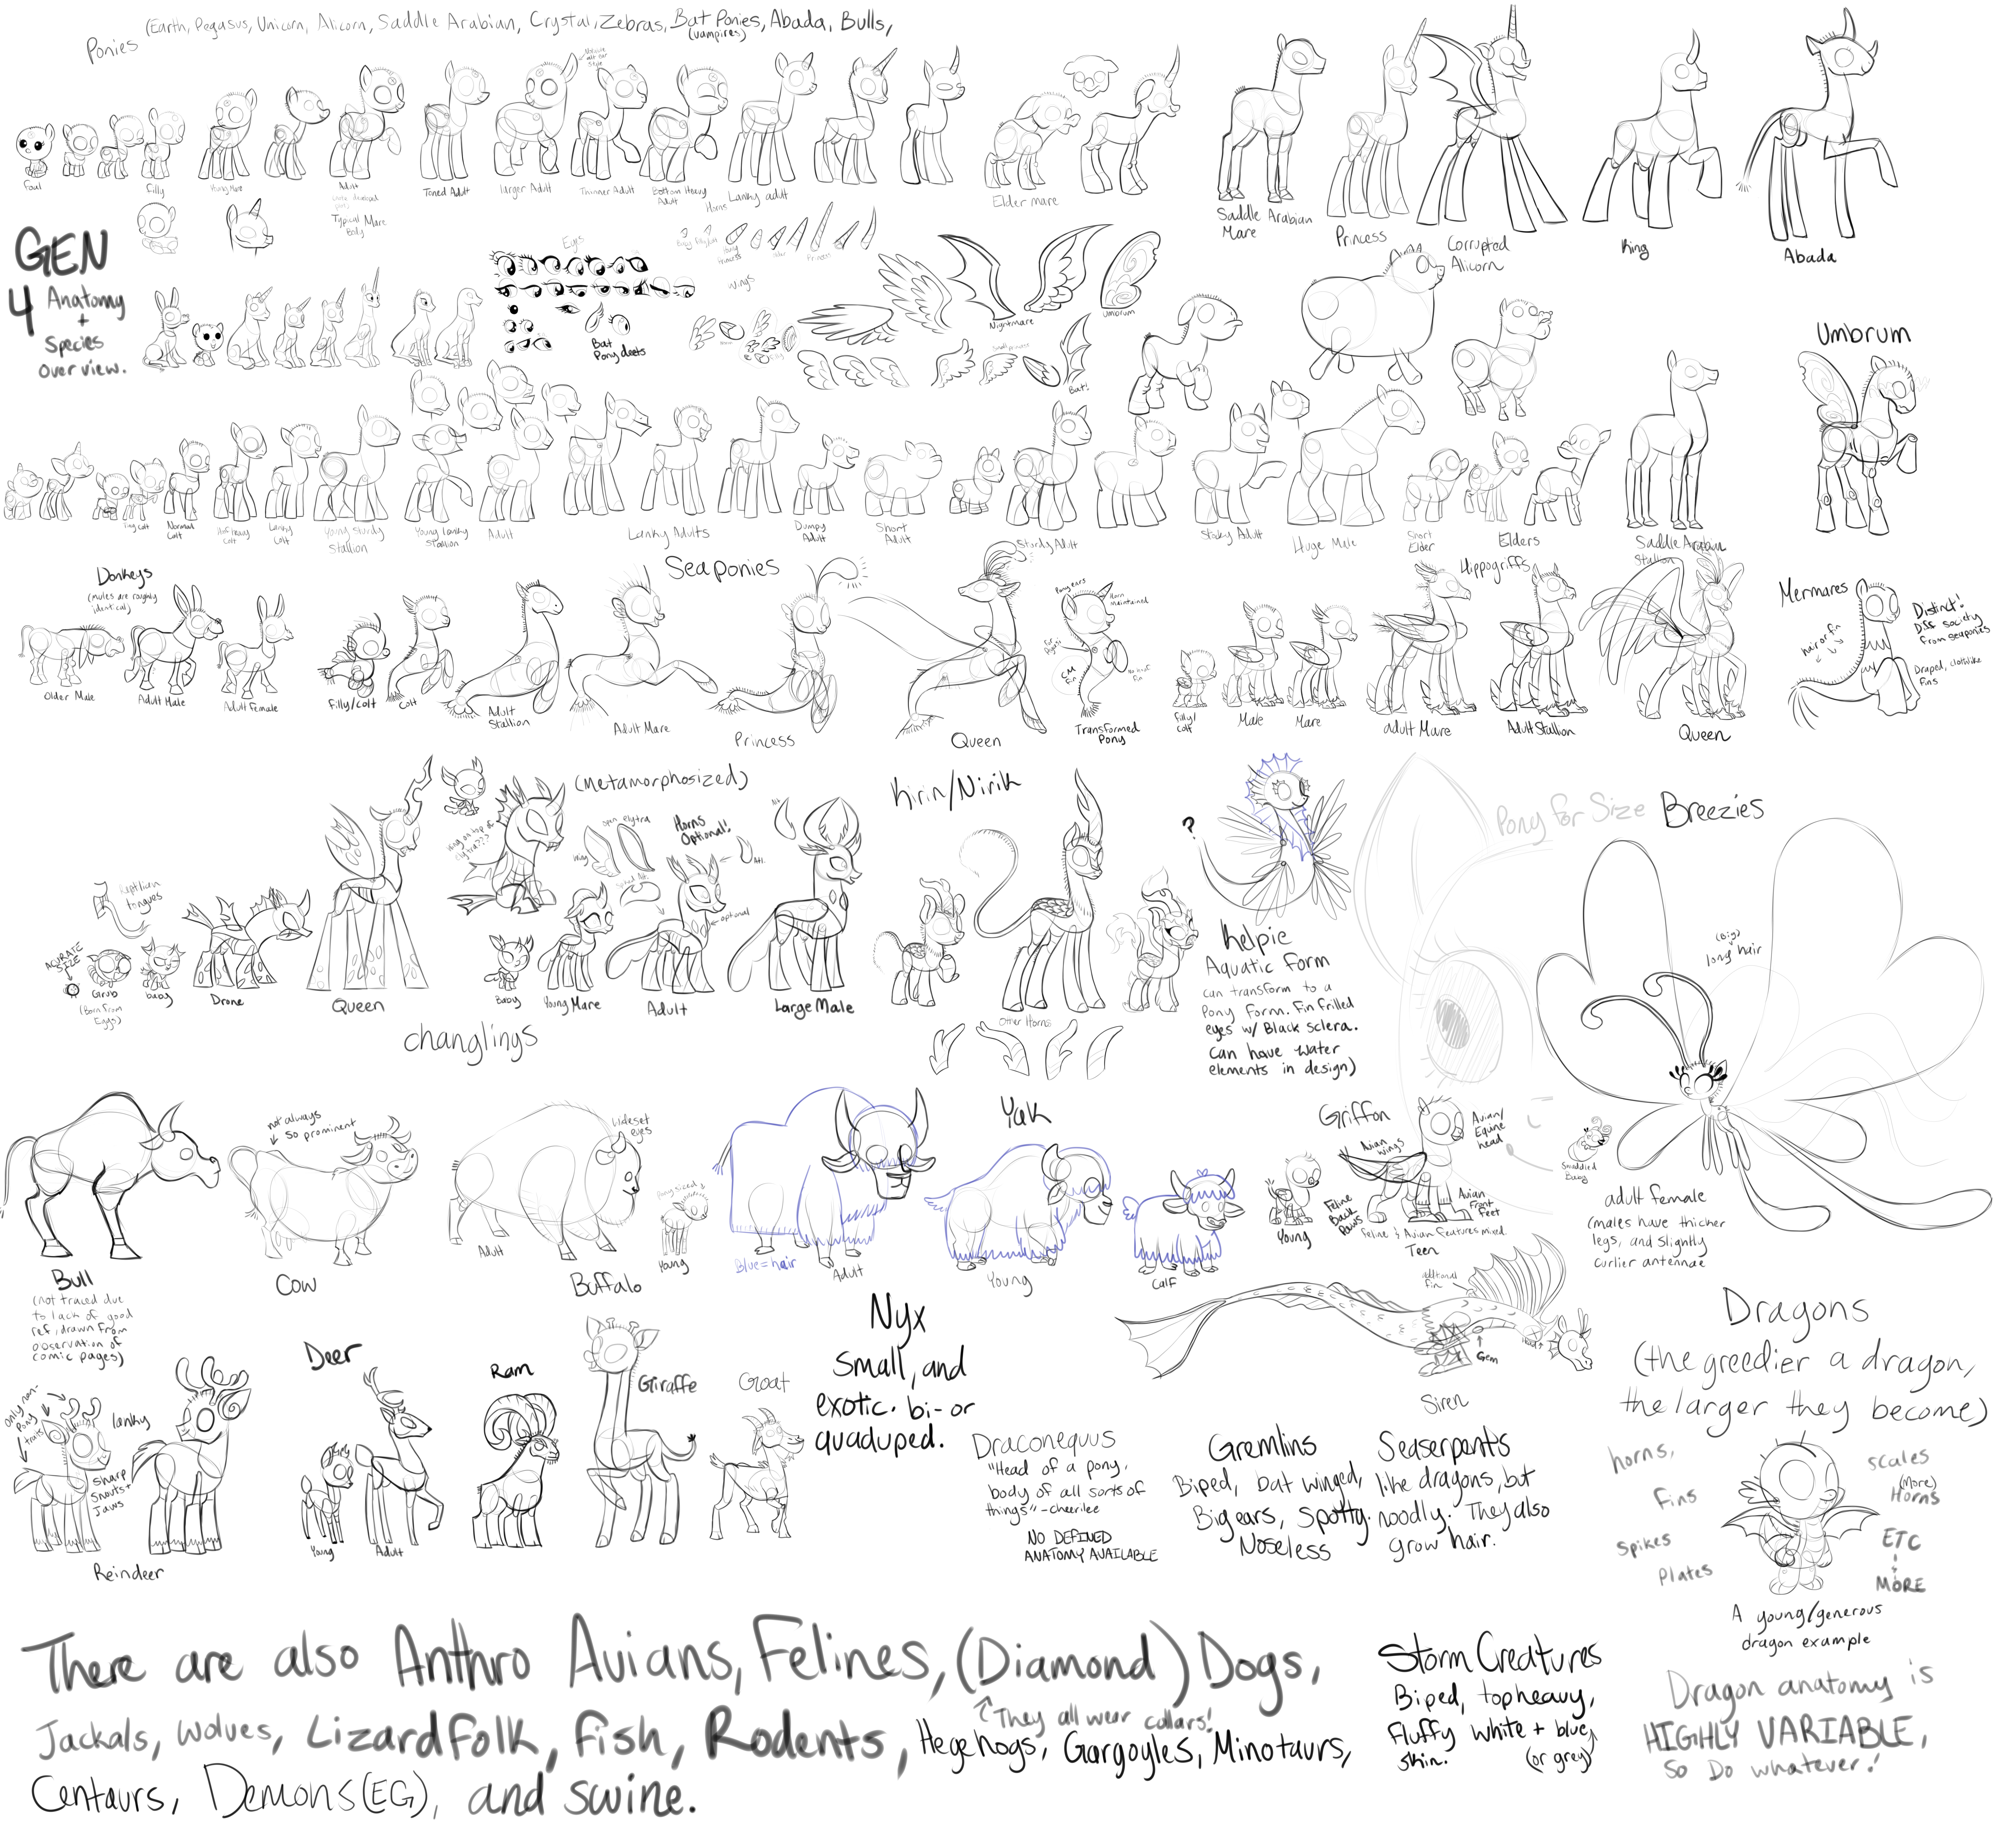 Ponies
(Earth, Pegasus, Unicorn, Alicorn, Saddle Arabian, Crystal, Zebras, Bat Ponies, Abada, Bulls,
(vampires)
Foal
Filly
Adult
Typical Mare
Body
Toned Adult
Larger Adult
Thinner Adult
Bottom Heavy
Adult
Lanky adult
Elder mare
Saddle Arabian
Mare
Princess
Corrupted
Alicorn
King
Abada
GEN
4 Anatomy
+
Species
Overview.
Horns
Eyes
Princess
Wings
Bat
Pony deets
Nightmare
Umbrum
Bat!
Umbrum
Normal
Colt
Lanky
Colt
Young Sturdy
Stallion
Young Lanky
Stallion
Adult
Lanky Adults
Dumpy
Adult
Short
Adult
Sturdy Adult
Stocky Adult
Huge Male
Short
Elder
Elders
Saddle Arabian
Stallion
Donkeys
(mules are roughly
identical)
Older Male
Adult Male
Adult Female
Seaponies
Filly/Colt
Colt
Adult
Stallion
Adult Mare
Princess
Queen
Pony ears
Horn
maintained
CM
Fin
Transformed
Pony
Hippogriffs
Filly/
Colt
Male
Mare
adult Mare
Adult Stallion
Queen
Mermares
hair or fin
Distinct!
Diff society
from seaponies
Draped, clothlike
Fins
Reptilian
tongues
ACURATE
SIZE
Grub
(Born From
Eggs)
baby
Drone
Queen
changlings
(Metamorphosized)
wing on top of
elytra???
wing
elytra
Horns
Optional!
Alt.
optional
Baby
Young Mare
Adult
Large Male
Kirin/Nirik
Other Horns
?
Kelpie
Aquatic form
can transform to a
Pony Form. Fin frilled
eyes w/ Black sclera.
can have water
elements in design)
Pony For Size
Breezies
(Big)
long hair
Swaddled
Baby
adult female
(males have thicker
legs, and slightly
curlier antennae
Bull
(not traced due
to lack of good
ref, drawn from
observation of
comic pages)
not always
so prominent
Cow
wideset
eyes
Pony sized
Adult
Buffalo
Young
Yak
Blue = hair
Adult
Young
Calf
Griffon
Avian
wings
Avian/
Equine
head
Feline
Back
Paws
Avian
Front
Feet
Young
Feline & Avian features mixed
Teen
additional
fin
Gem
Siren
Dragons
(the greedier a dragon,
the larger they become)
horns,
Fins
Spikes
Plates
scales
(More)
Horns
ETC
+
MORE
A young/generous
dragon example
Dragon anatomy is
HIGHLY VARIABLE,
So Do whatever!
only non-
Pony
traits
lanky
sharp
snouts +
Jaws
Reindeer
Deer
Young
Adult
Ram
Giraffe
Goat
Nyx
Small, and
exotic. bi- or
quaduped.
Draconequus
"Head of a pony,
body of all sorts of
things" -cheerilee
NO DEFINED
ANATOMY AVAILABLE
Gremlins
Biped, bat winged,
Big ears, Spotty.
Noseless
Seaserpents
like dragons, but
noodly. They also
grow hair.
There are also Anthro Avians, Felines, (Diamond) Dogs,
They all wear collars!
Jackals, wolves, Lizardfolk, fish, Rodents, Hegehogs, Gargoyles, Minotaurs,
Centaurs, Demons(EG), and swine.
Storm Creatures
Biped, topheavy,
fluffy white + blue
skin.
(or grey)